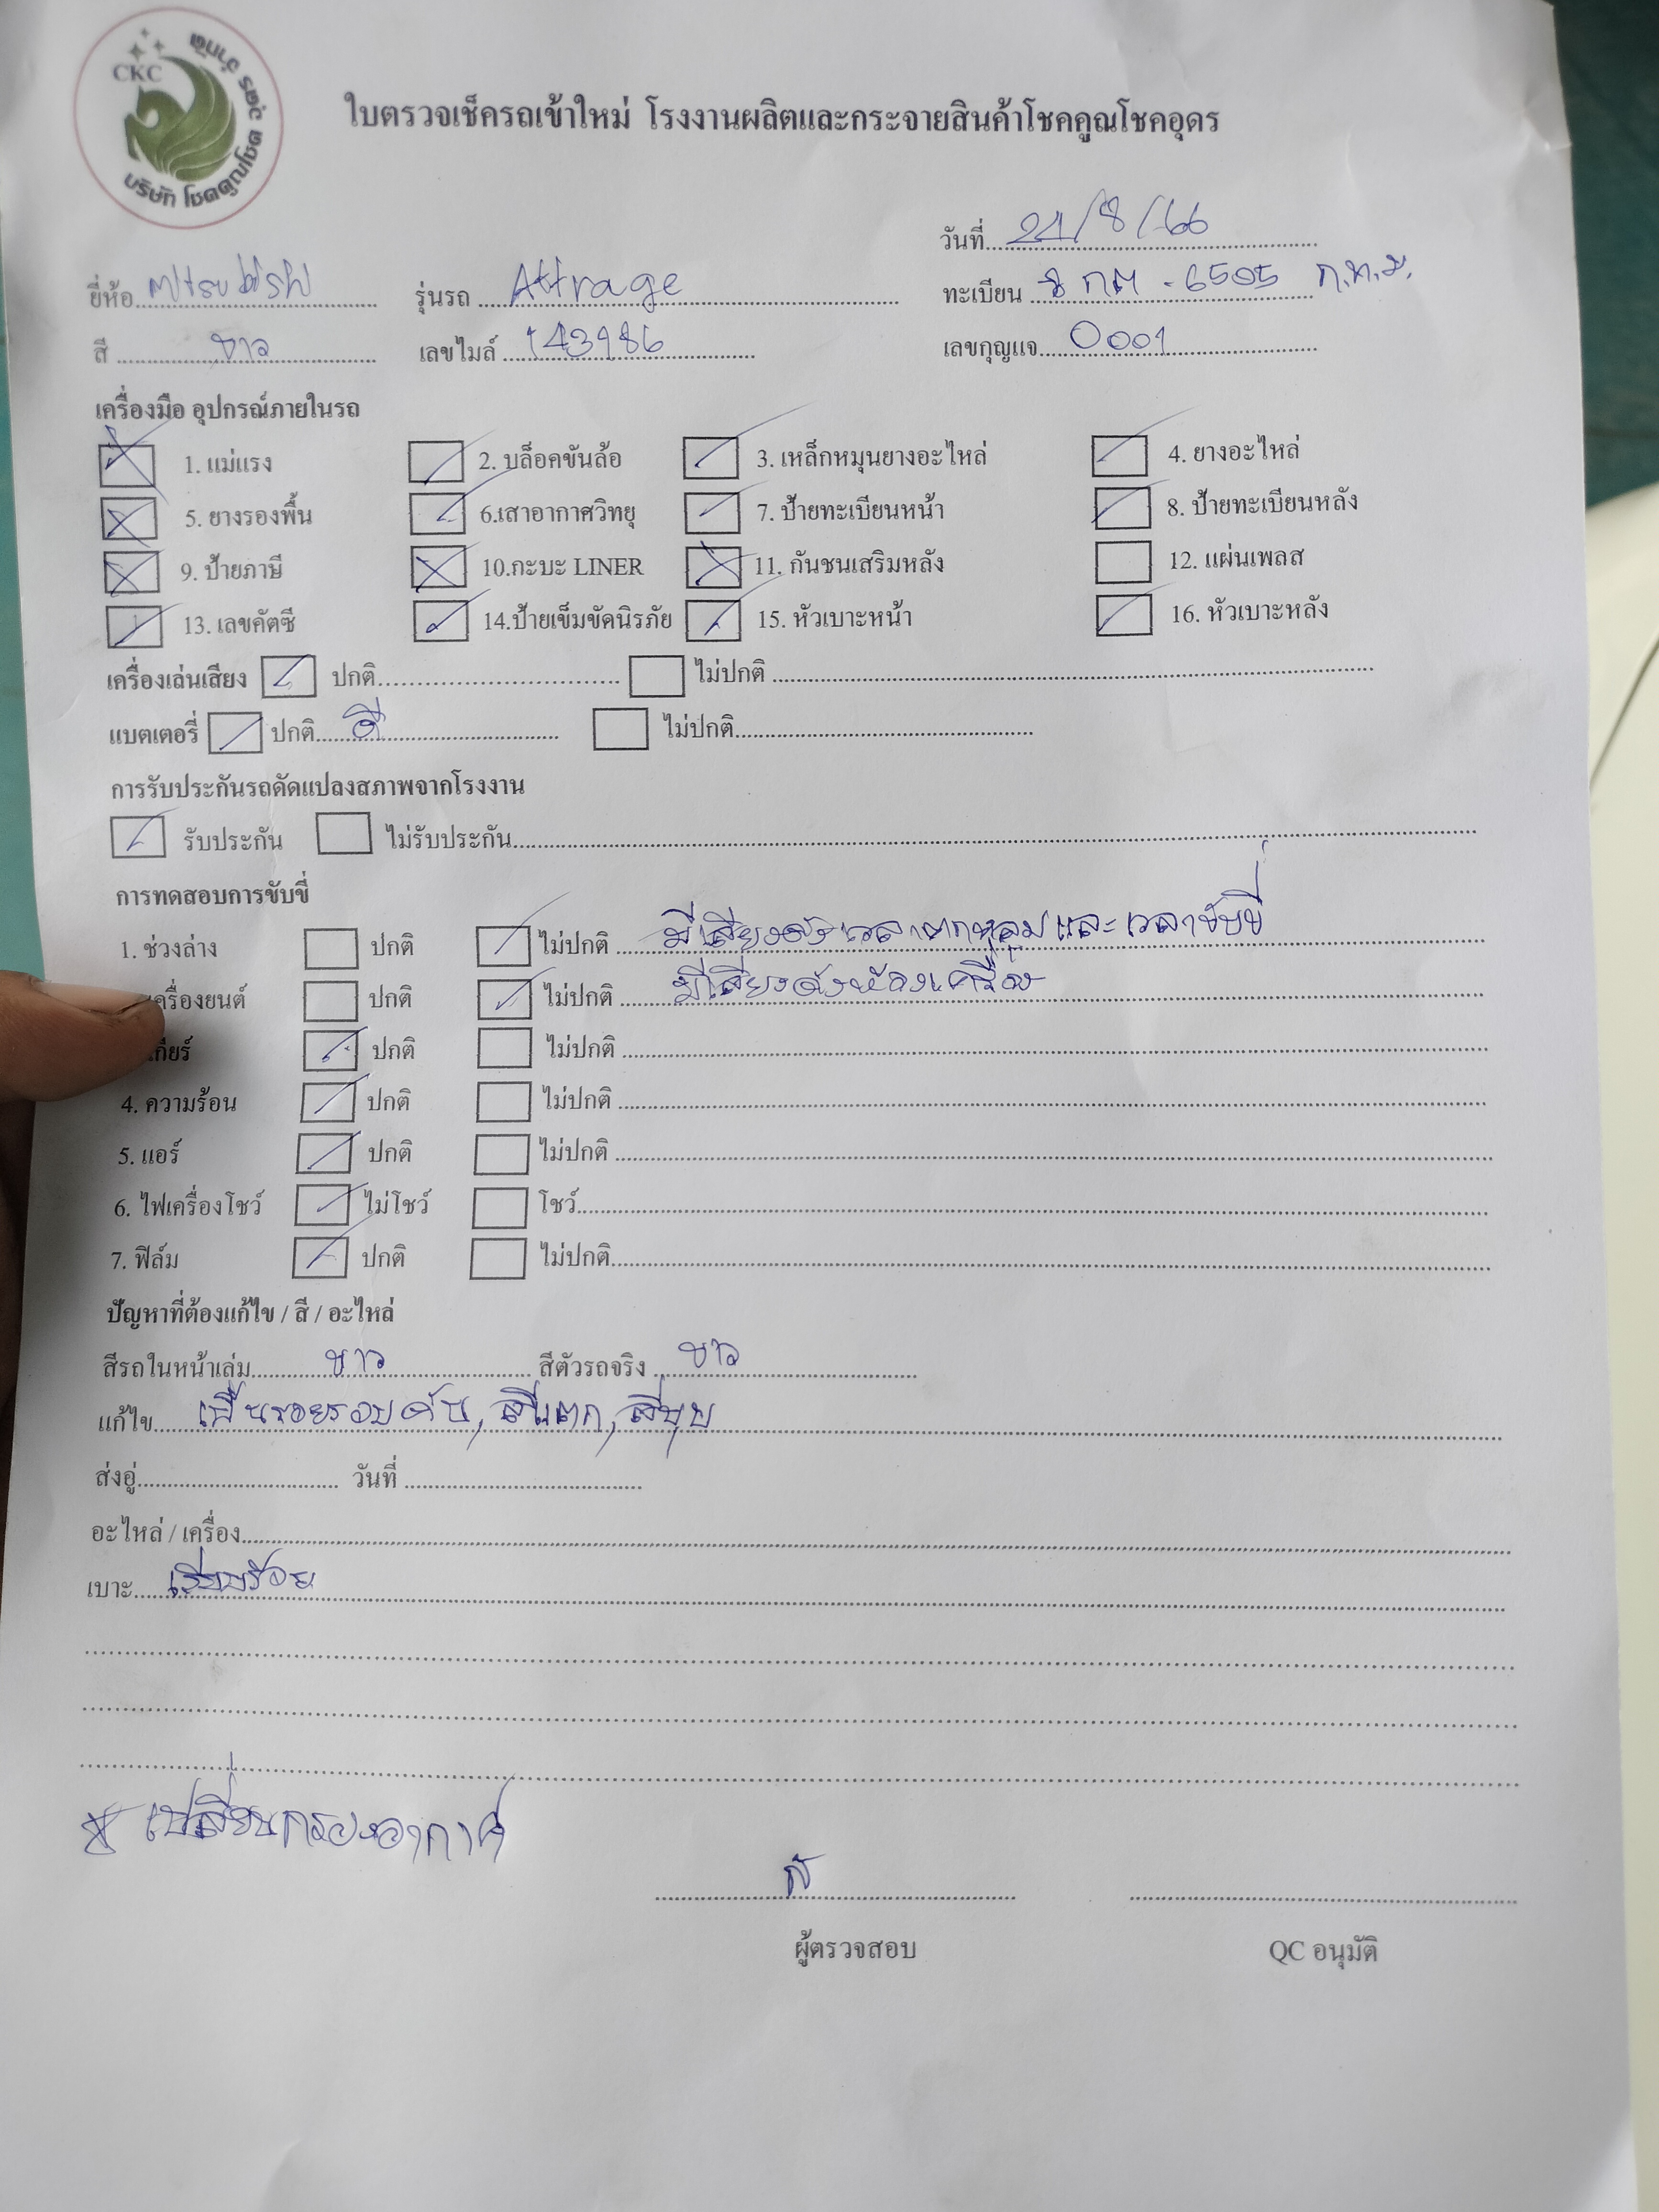 CKC
บริษัท โชคคูณโชค ๔๕๔ จำกัด
ใบตรวจเช็ครถเข้าใหม่ โรงงานผลิตและกระจายสินค้าโชคคูณโชคอุดร
วันที่ 21/8/66
ยี่ห้อ Mitsubishi รุ่นรถ Attrage ทะเบียน 8 กฒ - 6505 ก.ท.ม.
สี ขาว เลขไมล์ 143986 เลขกุญแจ 0001
เครื่องมือ อุปกรณ์ภายในรถ
1. แม่แรง 2. บล็อคขันล้อ 3. เหล็กหมุนยางอะไหล่ 4. ยางอะไหล่
5. ยางรองพื้น 6.เสาอากาศวิทยุ 7. ป้ายทะเบียนหน้า 8. ป้ายทะเบียนหลัง
9. ป้ายภาษี 10.กะบะ LINER 11. กันชนเสริมหลัง 12. แผ่นเพลส
13. เลขคัตซี 14.ป้ายเข็มขัดนิรภัย 15. หัวเบาะหน้า 16. หัวเบาะหลัง
เครื่องเล่นเสียง ปกติ ไม่ปกติ
แบตเตอรี่ ปกติ ดี ไม่ปกติ
การรับประกันรถดัดแปลงสภาพจากโรงงาน
รับประกัน ไม่รับประกัน
การทดสอบการขับขี่
1. ช่วงล่าง ปกติ ไม่ปกติ มีเสียงดังเวลาตกหลุมและเวลาขับขี่
ครื่องยนต์ ปกติ ไม่ปกติ มีเสียงดังห้องเครื่อง
เกียร์ ปกติ ไม่ปกติ
4. ความร้อน ปกติ ไม่ปกติ
5. แอร์ ปกติ ไม่ปกติ
6. ไฟเครื่องโชว์ ไม่โชว์ โชว์
7. ฟิล์ม ปกติ ไม่ปกติ
ปัญหาที่ต้องแก้ไข / สี / อะไหล่
สีรถในหน้าเล่ม ขาว สีตัวรถจริง ขาว
แก้ไข เป็นรอยรอบคัน, สีแตก, สีบุบ
ส่งอู่ วันที่
อะไหล่ / เครื่อง
เบาะ เรียบร้อย
* เปลี่ยนกรองอากาศ
ผู้ตรวจสอบ QC อนุมัติ